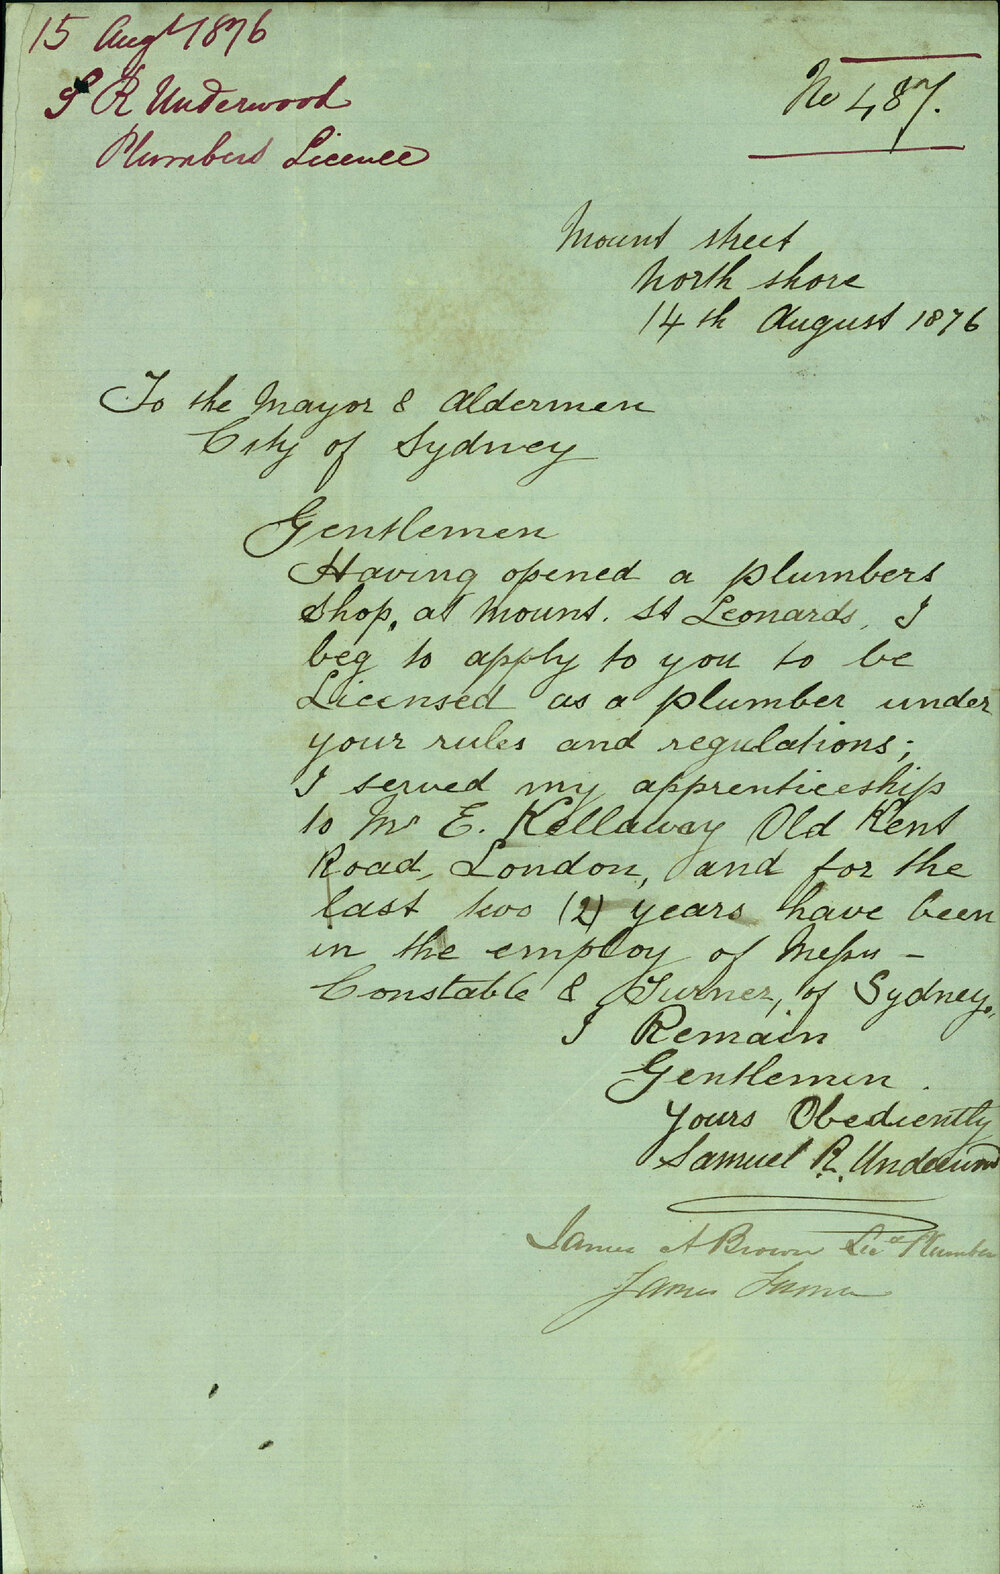 15 Augt 1876
S R Underwood
Plumbers Licence
No 487.
Mount street
North shore
14th August 1876
To the Mayor & Aldermen
City of Sydney
Gentlemen
Having opened a plumbers
shop, at Mount. St Leonards, I
beg to apply to you to be
Licensed as a plumber under
your rules and regulations;
I served my apprenticeship
to Mr E. Kellaway Old Kent
Road, London, and for the
last two (2) years have been
in the employ of Messrs -
Constable & Turner, of Sydney.,
I Remain
Gentlemen.
Yours Obediently
Samuel R. Underwood
James A Brown Licd Plumber
James Turner